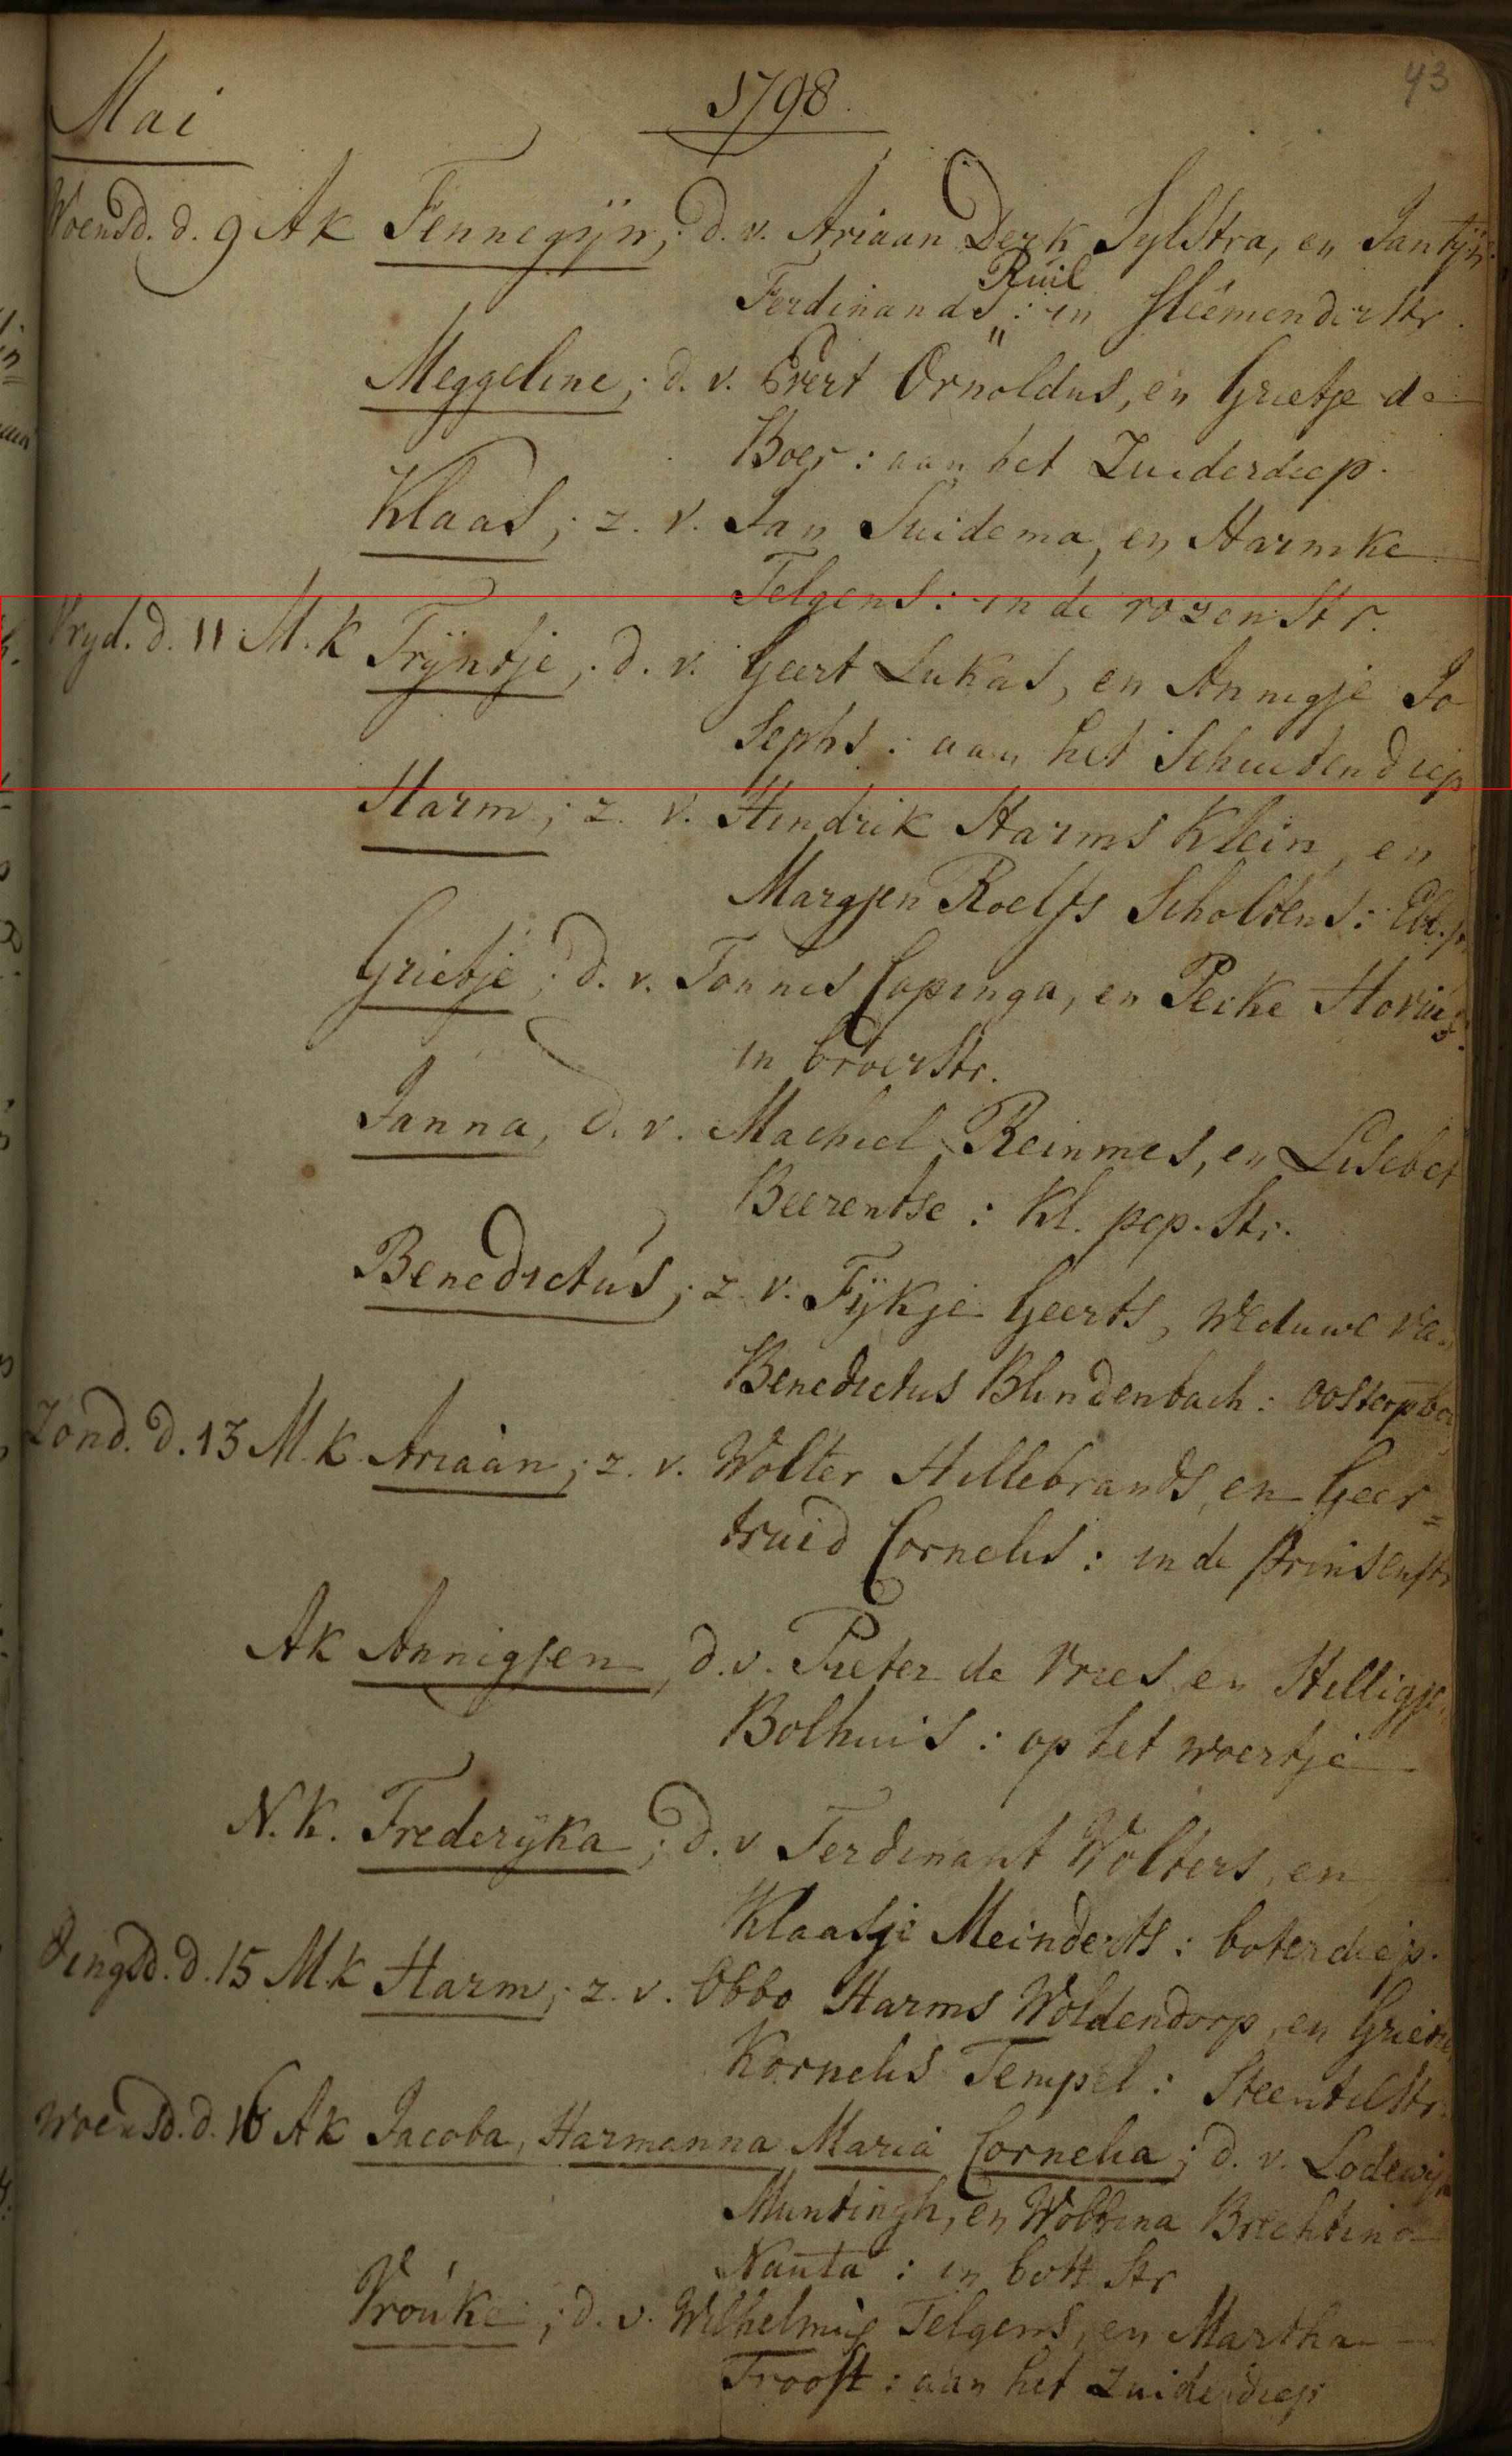 43
Mai
1798.
Woensd. d. 9 A k Fennegijn; d. v. Ariaan Derk Sylstra, en Jantijn
Ruil
Ferdinands : in Heemenderstr.
Meggeline; d. v. Evert Ornoldus, en Grietje de
Boer : aan het Zuiderdiep.
Klaas; z. v. Jan Suidema, en Harmke
Telgens : in de rozenstr.
Vryd. d. 11 M. k Trÿntje; d. v. Geert Lukas, en Annigje Jo
sephs : aan het Schuitendiep
Harm; z. v. Hendrik Harms Klein, en
Margjen Roelfs Scholtens :
Grietje; d. v. Tonnes Copinga, en Peike Hovius
in broerstr.
Janna, d. v. Machiel Reinmes, en Lisebet
Beerentse : Kl. pep. str.
Benedictus; z. v. Fÿkje Geerts, Weduwe va
Benedictus Blindenbach : oosterpoo
Zond. d. 13 M. k Ariaan; z. v. Wolter Hillebrands, en Geer=
truid Cornelis : in de Prinsenstr
A k Annigjen, d. v. Pieter de Vries, en Hilligje
Bolhuis : op het woertje
N. k. Frederyka; d. v Ferdinant Wolters, en
Klaasje Meinderts : boterdiep.
Dingsd. d. 15 M. k Harm; z. v. Obbo Harms Woldendorp, en Grietie
Kornelis Tempel : Steentilstr.
Woensd. d. 16 A k Jacoba, Harmanna Maria Cornelia; d. v. Lodewijk
Muntingh, en Wobbina Brechtina
Nauta : in bott str
Vroúke; d. v. Wilhelmus Telgens, en Martha
Troost : aan het Zuiderdiep